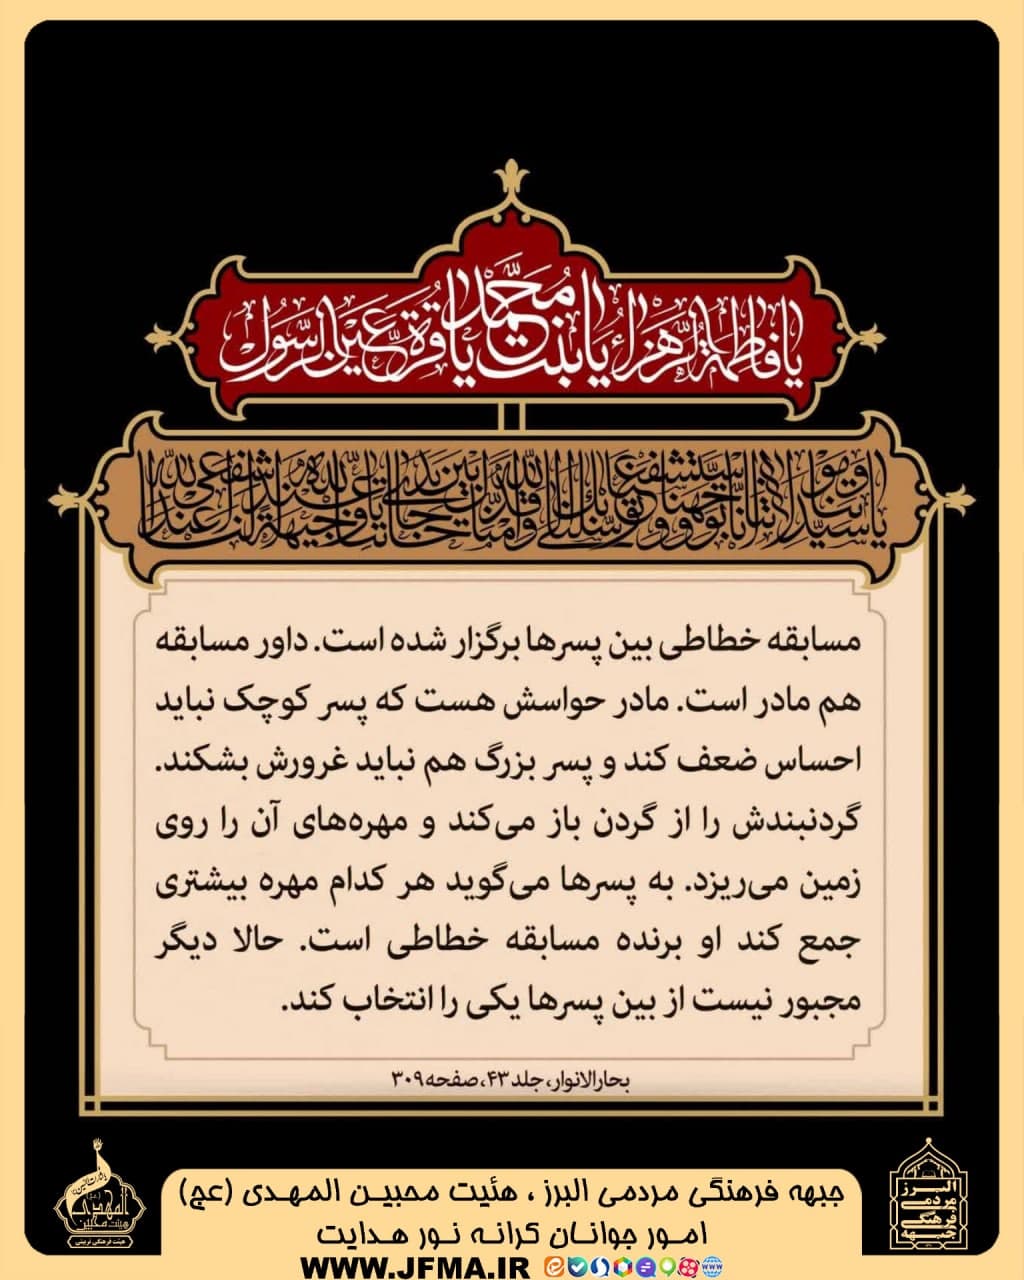 يا فاطمة الزهراء يا بنت محمد يا قرة عين الرسول
يا سيدتنا ومولاتنا إنا توجهنا واستشفعنا وتوسلنا بك إلى الله وقدمناك بين يدي حاجاتنا يا وجيهة عند الله اشفعي لنا عند الله
مسابقه خطاطی بین پسرها برگزار شده است. داور مسابقه
هم مادر است. مادر حواسش هست که پسر کوچک نباید
احساس ضعف کند و پسر بزرگ هم نباید غرورش بشکند.
گردنبندش را از گردن باز می‌کند و مهره‌های آن را روی
زمین می‌ریزد. به پسرها می‌گوید هر کدام مهره بیشتری
جمع کند او برنده مسابقه خطاطی است. حالا دیگر
مجبور نیست از بین پسرها یکی را انتخاب کند.
بحارالانوار، جلد ۴۳، صفحه ۳۰۹
جبهه فرهنگی مردمی البرز ، هئیت محبین المهدی (عج)
امور جوانان کرانه نور هدایت
WWW.JFMA.IR
المهدی
هیئت محبین
هیئت فرهنگی تربیتی
البرز
مردمی
فرهنگی
جبهه